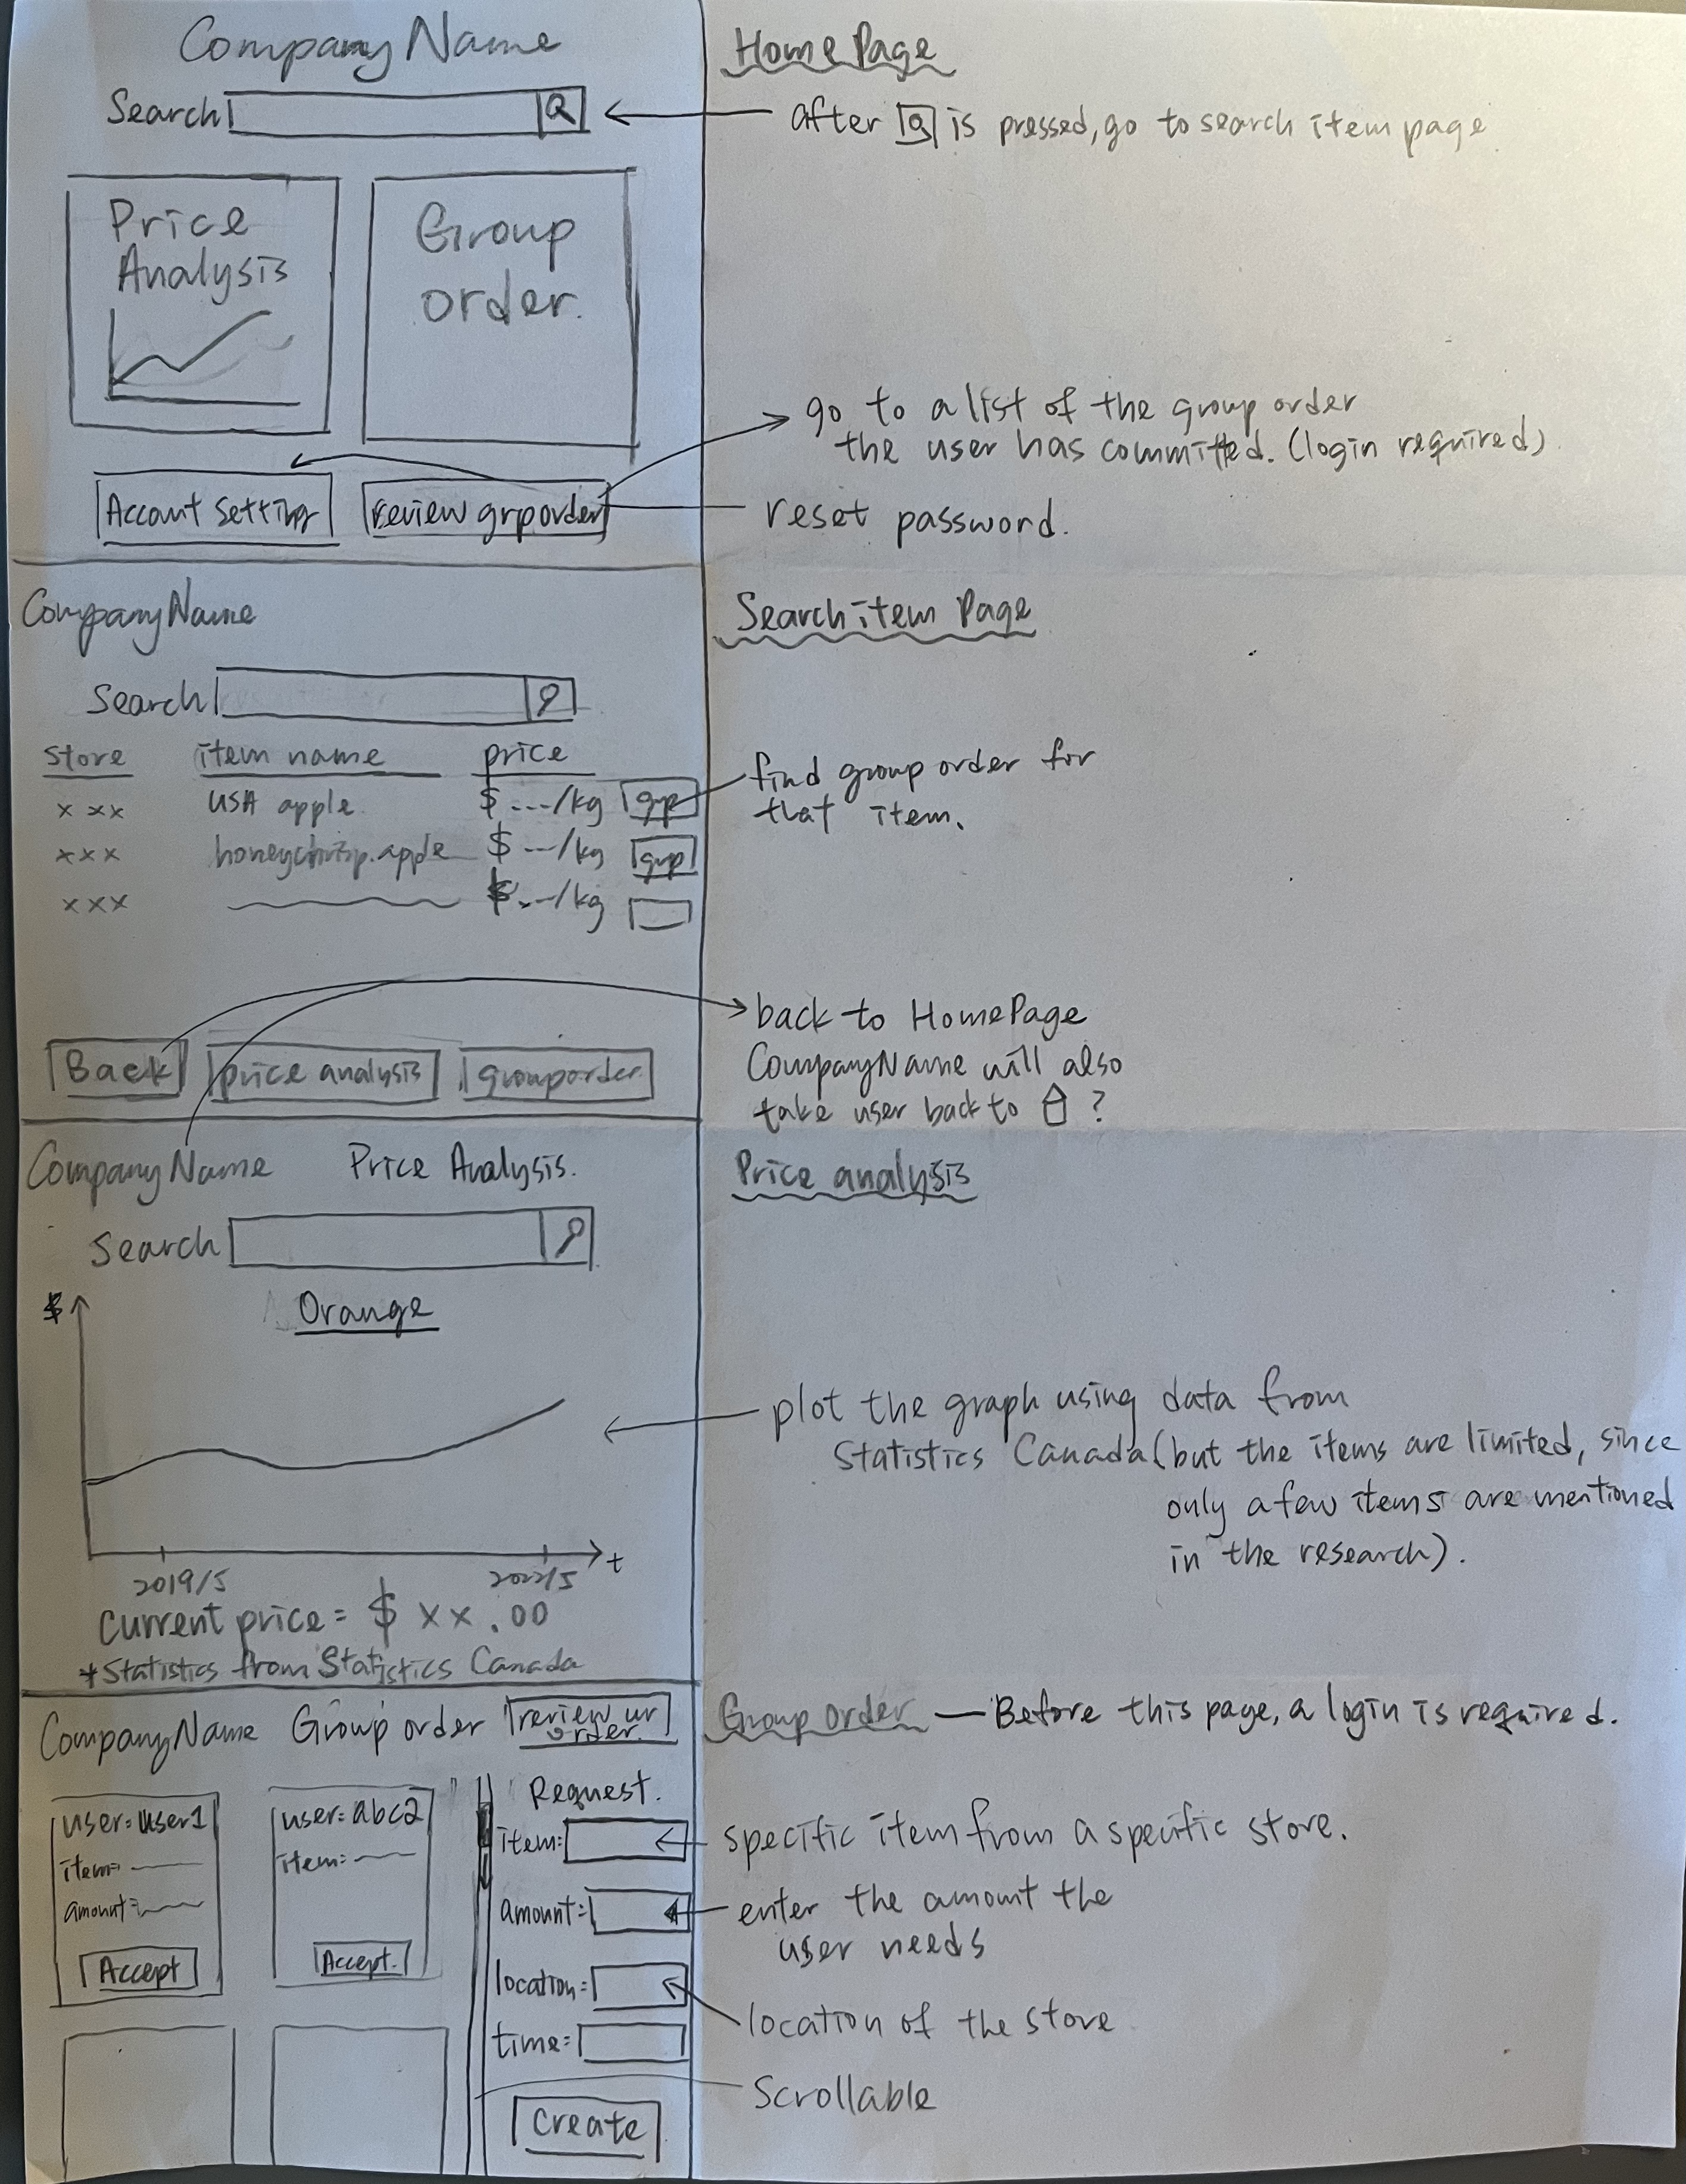 Company Name
Search
Price
Analysis
Group
order.
Account Setting
review grp order
Home Page
after is pressed, go to search item page
go to a list of the group order
the user has committed. (login required)
reset password.
Company Name
Search
store item name price
x xx USA apple $ ---/kg grp
xxx honeychrisp.apple $ --/kg grp
xxx $.-/kg
Back
price analysis
group order
Search item Page
find group order for
that item.
back to HomePage
CompanyName will also
take user back to ?
Company Name Price Analysis.
Search
$
Orange
t
2019/5 2022/5
Current price = $ xx.00
*Statistics from Statistics Canada
Price analysis
plot the graph using data from
Statistics Canada (but the items are limited, since
only a few items are mentioned
in the research).
Company Name Group order
review ur
order.
user: user1
item:
amount:
Accept
user: abc2
item:
Accept.
Request.
item:
amount:
location:
time:
Create
Group Order — Before this page, a login is required.
specific item from a specific store.
enter the amount the
user needs
location of the store
Scrollable